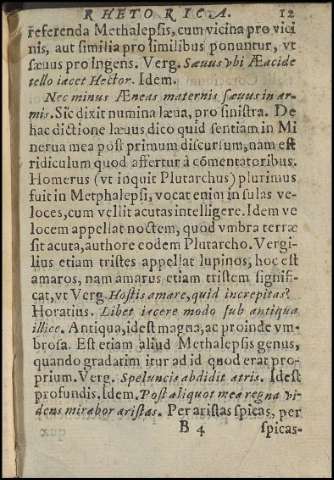 RHETORICA. 12
referenda Methalepsis, cum vicina pro vici
nis, aut similia pro similibus ponuntur, vt
sæuus pro ingens. Verg. Sæuus vbi Æacide
tello iacet Hector. Idem.
Nec minus Æneas maternis sæuus in ar-
mis. Sic dixit numina læua, pro sinistra. De
hac dictione læuus dico quid sentiam in Mi
nerua mea post primum discursum, nam est
ridiculum quod affertur à cõmentatoribus.
Homerus (vt inquit Plutarchus) plurimus
fuit in Methphalepsi, vocat enim insulas ve-
loces, cum vellit acutas intelligere. Idem ve
locem appellat noctem, quod vmbra terræ
sit acuta, authore eodem Plutarcho. Vergi-
lius etiam tristes appellat lupinos, hoc est
amaros, nam amarus etiam tristem signifi-
cat, vt Verg. Hostis amare, quid increpitas?
Horatius. Libet iacere modo sub antiqua
illice. Antiqua, idest magna, ac proinde vm-
brosa. Est etiam aliud Methalepsis genus,
quando gradatim itur ad id quod erat pro-
prium. Verg. Speluncis abdidit atris. Idest
profundis. Idem. Post aliquot mea regna vi
dens mirabor aristas. Per aristas spicas, per
B 4 spicas-